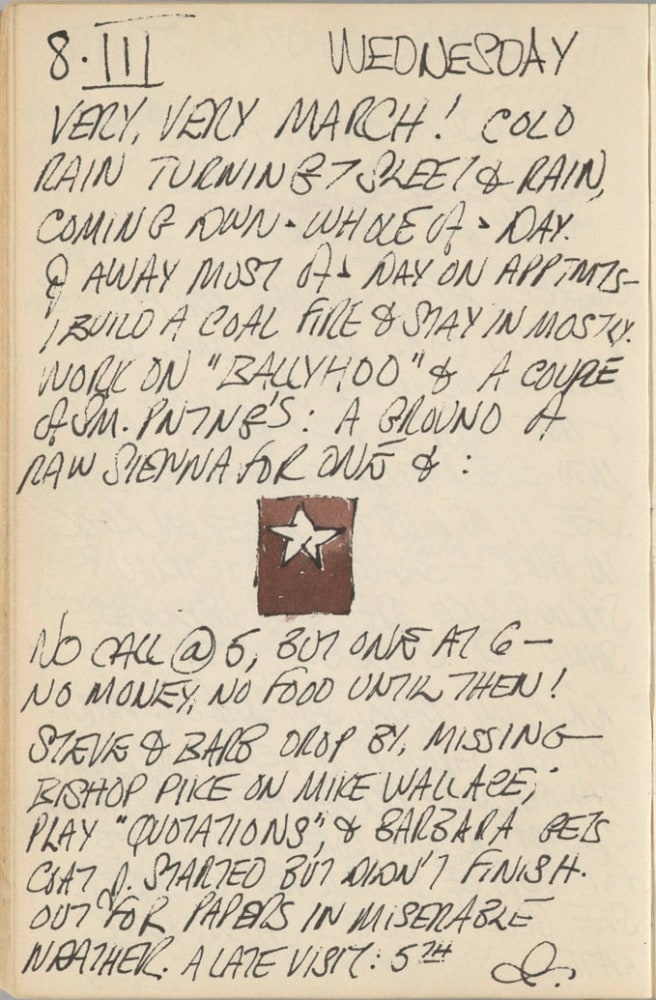 8·III WEDNESDAY
VERY, VERY MARCH! COLD
RAIN TURNING SLEET & RAIN,
COMING DWN · WHOLE OF · DAY.
AWAY MOST OF · DAY ON APPTMTS–
I BUILD A COAL FIRE & STAY IN MOSTLY.
WORK ON "BALLYHOO" & A COUPLE
OF SM. PNTNG'S: A GROUND OF
RAW SIENNA FOR ONE & :
NO CALL @ 5, BUT ONE AT 6 –
NO MONEY, NO FOOD UNTIL THEN!
STEVE & BARB DROP BY, MISSING
BISHOP PIKE ON MIKE WALLACE;
PLAY "QUOTATIONS", & BARBARA GETS
COAT STARTED BUT DIDN'T FINISH.
OUT FOR PAPERS IN MISERABLE
WEATHER. A LATE VISIT: 5TH